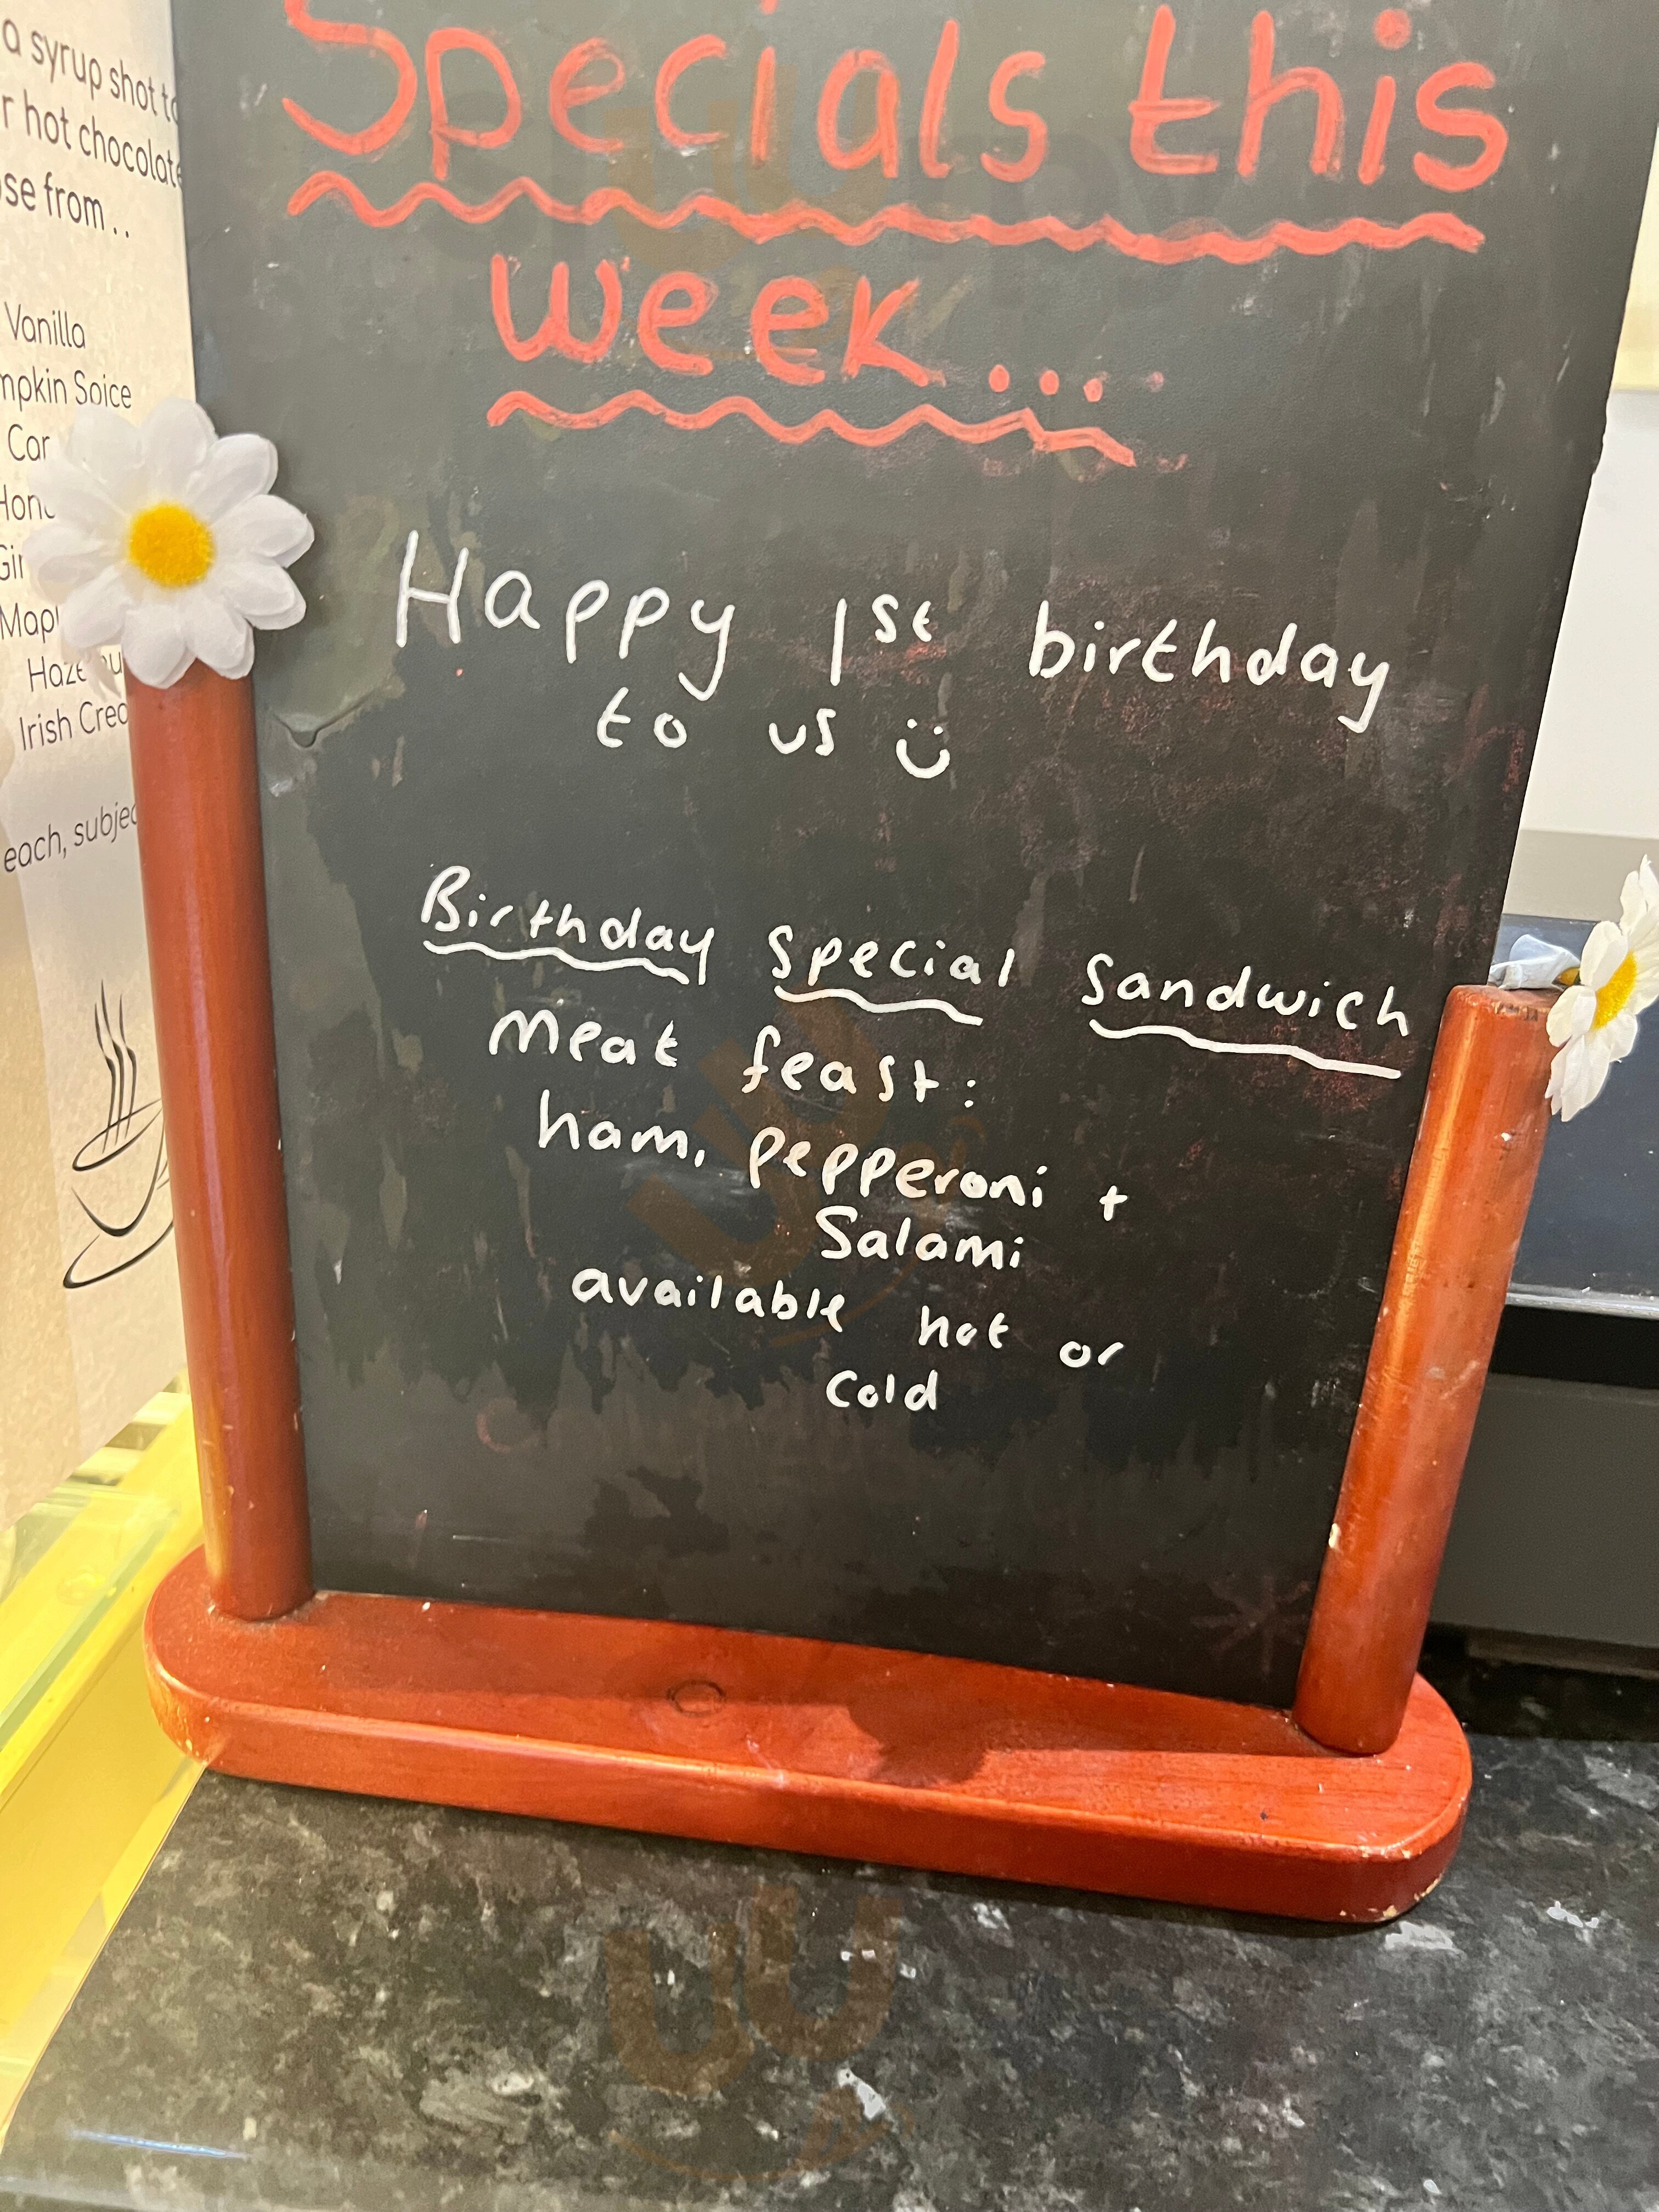 a syrup shot to
r hot chocolate
se from . .
Vanilla
mpkin Soice
Car
Hon
Gir
Mapl
Haze nu
Irish Crea
each, subjec
Specials this
week...
Happy 1st birthday
to us
Birthday special sandwich
meat feast:
ham, pepperoni +
Salami
available hot or
cold